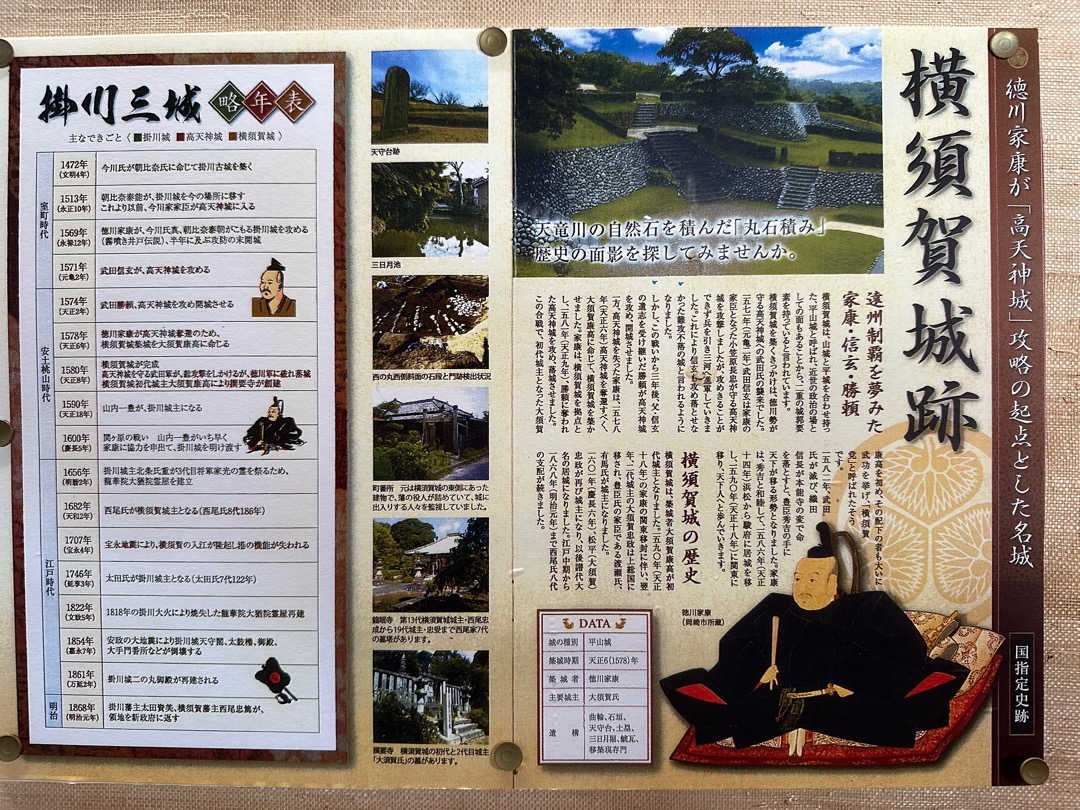 掛川三城 略年表
主なできごと〈 ■掛川城 ■高天神城 ■横須賀城 〉
室町時代
1472年
(文明4年)
今川氏が朝比奈氏に命じて掛川古城を築く
1513年
(永正10年)
朝比奈泰能が、掛川城を今の場所に移す
これより以前、今川家家臣が高天神城に入る
1569年
(永禄12年)
徳川家康が、今川氏真、朝比奈泰朝がこもる掛川城を攻める
(霧噴き井戸伝説)、半年に及ぶ攻防の末開城
安土桃山時代
1571年
(元亀2年)
武田信玄が、高天神城を攻める
1574年
(天正2年)
武田勝頼、高天神城を攻め開城させる
1578年
(天正6年)
徳川家康が高天神城奪還のため、
横須賀城築城を大須賀康高に命じる
1580年
(天正8年)
横須賀城が完成
高天神城を守る武田軍が、総攻撃をしかけるが、徳川軍に破れ落城
横須賀城初代城主大須賀康高により撰要寺が創建
1590年
(天正18年)
山内一豊が、掛川城主になる
1600年
(慶長5年)
関ヶ原の戦い 山内一豊がいち早く
家康に協力を申出て、掛川城を明け渡す
江戸時代
1656年
(明暦2年)
掛川城主北条氏重が3代目将軍家光の霊を祭るため、
龍華院大猷院霊屋を建立
1682年
(天和2年)
西尾氏が横須賀城主となる(西尾氏8代186年)
1707年
(宝永4年)
宝永地震により、横須賀の入江が隆起し港の機能が失われる
1746年
(延享3年)
太田氏が掛川城主となる(太田氏7代122年)
1822年
(文政5年)
1818年の掛川大火により焼失した龍華院大猷院霊屋再建
1854年
(嘉永7年)
安政の大地震により掛川城天守閣、太鼓櫓、御殿、
大手門番所などが倒壊する
1861年
(万延2年)
掛川城二の丸御殿が再建される
明治
1868年
(明治元年)
掛川藩主太田資美、横須賀藩主西尾忠篤が、
領地を新政府に返す
天守台跡
三日月池
西の丸西側斜面の石段と門跡検出状況
町番所 元は横須賀城の東側にあった
建物で、藩の役人が詰めていて、城に
出入りする人々を監視していました。
龍眠寺 第13代横須賀城城主・西尾忠
成から19代城主・忠受まで西尾家7代
の墓塔があります。
撰要寺 横須賀城の初代と2代目城主
「大須賀氏」の墓があります。
徳川家康が「高天神城」攻略の起点とした名城
国指定史跡
横須賀城跡
天竜川の自然石を積んだ「丸石積み」
歴史の面影を探してみませんか。
遠州制覇を夢みた
家康・信玄・勝頼
横須賀城は、山城と平城を合わせ持っ
た、平山城と呼ばれ、近世の政治の場と
しての面もあることから、二重の城郭要
素を持っていると言われています。
横須賀城を築くきっかけは、徳川勢が
守る高天神城への武田氏の襲来でした。
一五七一年(元亀二年)武田信玄は家康の
家臣となった小笠原長忠が守る高天神
城を攻撃しましたが、攻めきることが
できず兵を引き三河へ進軍していきま
した。これにより信玄も攻め落とせな
かった難攻不落の城と言われるように
なりました。
しかし、この戦いから三年後、父・信玄
の遺志を受け継いだ勝頼が高天神城
を攻め、開城させました。
一方、高天神城を失った家康は、一五七八
年(天正六年)高天神城を奪還すべく、
大須賀康高に命じて、横須賀城を築か
せました。家康は、横須賀城を拠点と
し、一五八一年(天正九年)、勝頼に奪われ
た高天神城を攻め、落城させました。
この合戦で、初代城主となった大須賀
康高を初め、その配下の者も大いに
武功を挙げ、「横須賀
党」と呼ばれたそう
です。
一五八二年、武田
氏が滅び、織田
信長が本能寺の変で命
を落とすと、豊臣秀吉の手に
天下が移る形勢となりました。家康
は、秀吉と和睦して、一五八六年(天正
十四年)浜松から駿府に居城を移
し、一五九〇年(天正十八年)に関東に
移り、天下人へと歩んでいきます。
横須賀城の歴史
横須賀城は、築城者大須賀康高が初
代城主となりました。一五九〇年(天正
十八年)の家康の関東移封に伴い、翌
年、二代城主の大須賀忠政は上総国に
移され、豊臣氏の家臣である渡瀬氏、
有馬氏が城主になりました。
一六〇一年(慶長六年)、松平(大須賀)
忠政が再び城主になり、以後譜代大
名の居城になりました。江戸中期から
一八六八年(明治元年)まで西尾氏八代
の支配が続きました。
徳川家康
(岡崎市所蔵)
DATA
城の種別 平山城
築城時期 天正6(1578)年
築城者 徳川家康
主要城主 大須賀氏
遺構 曲輪、石垣、
天守台、土塁、
三日月堀、鯱瓦、
移築現存門